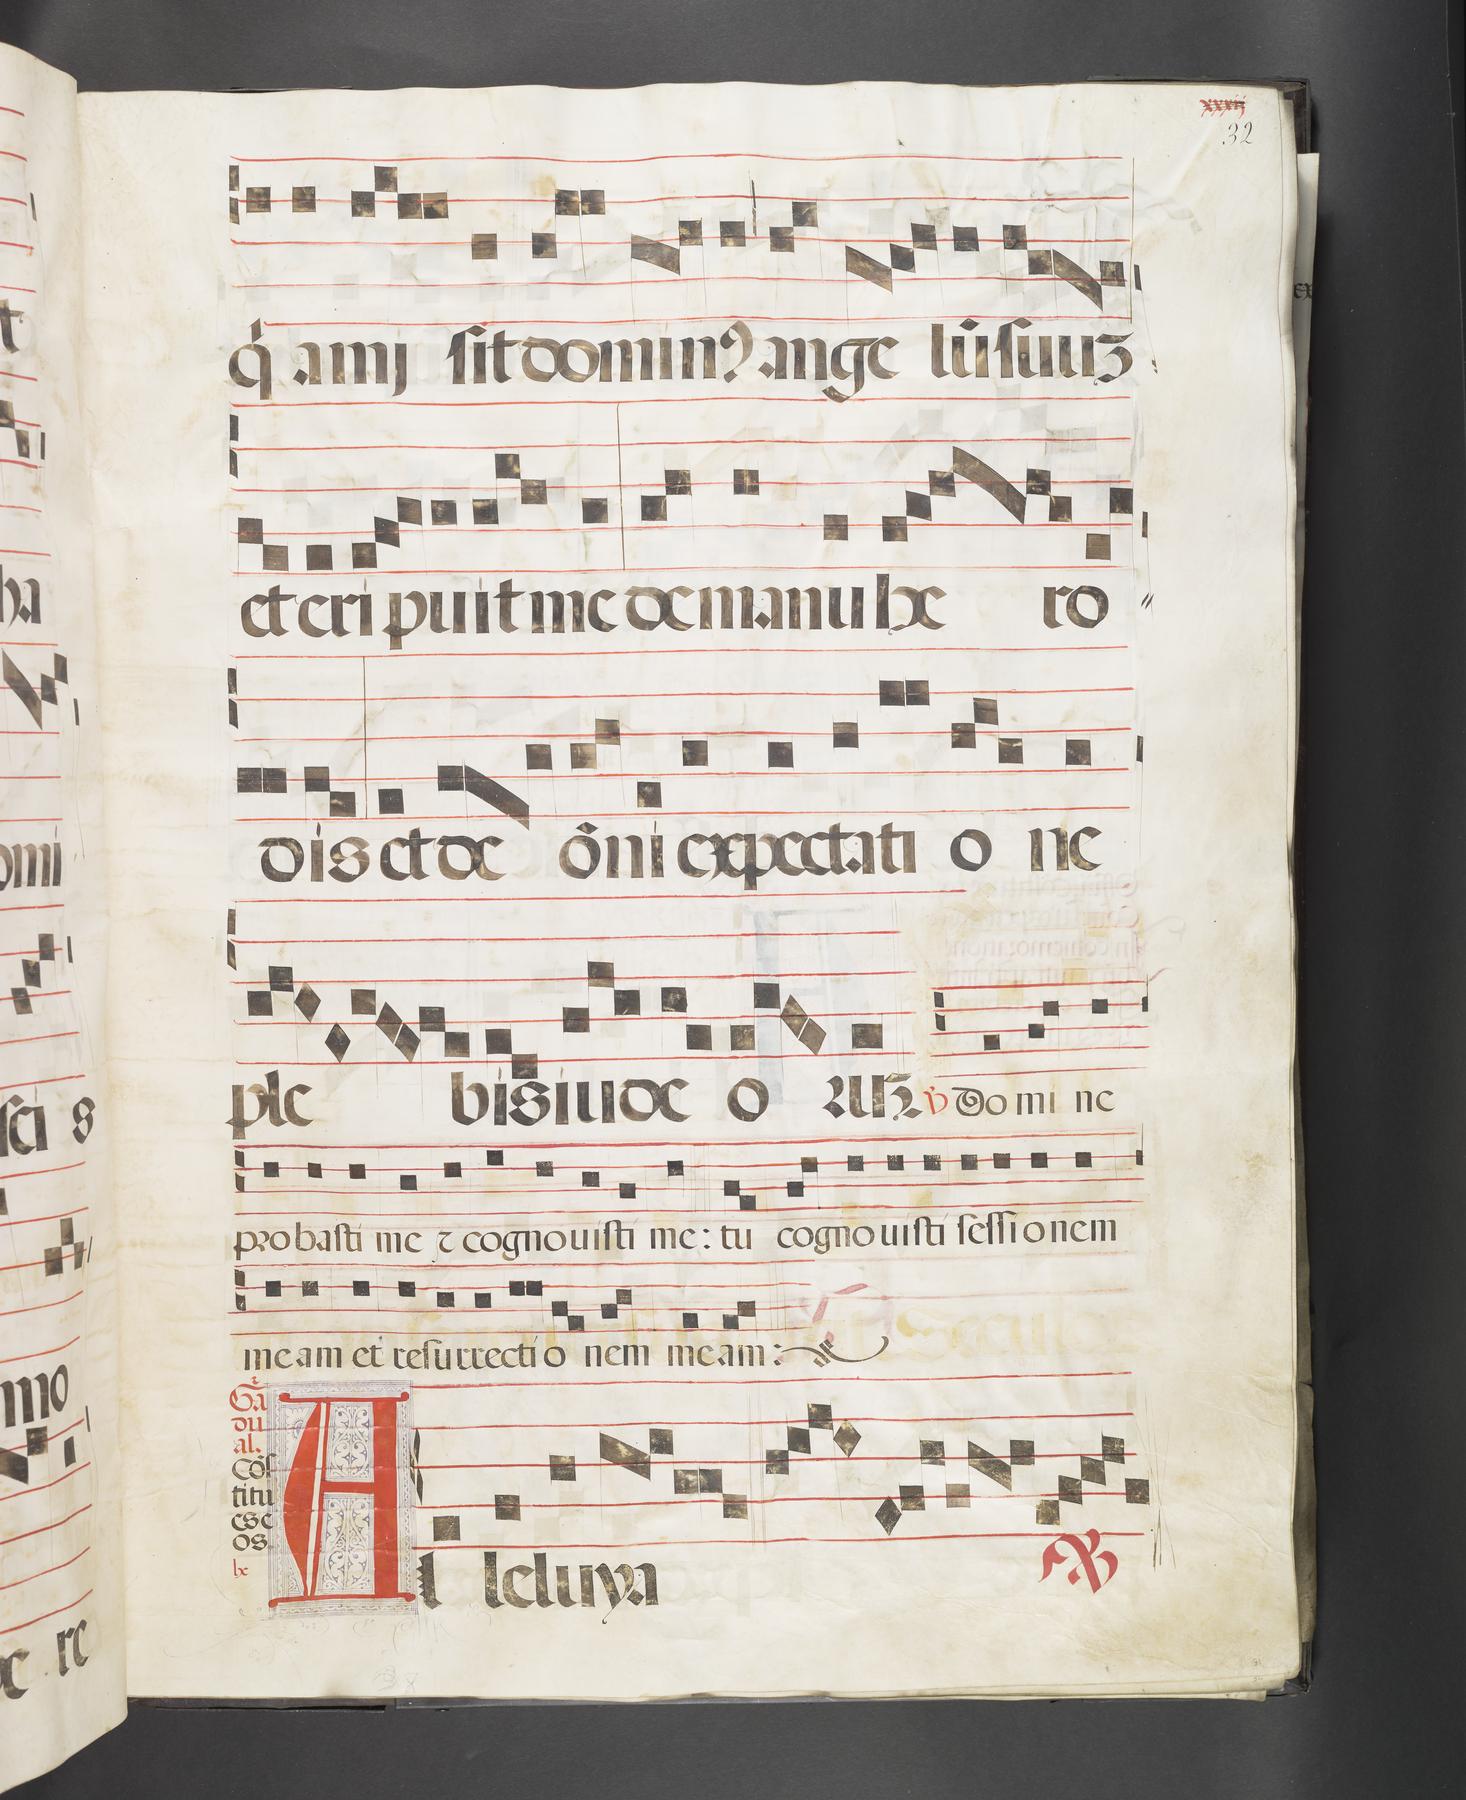 xxxii
32
q̇ a mıȷ sit domin⁹ ange lũ suuʒ
et eri puit me de manu he ro
dis et de õni expectati o ne
ple bis iude o
℣ Do mi ne
probasti me ⁊ cognouisti me: tu cognouisti sessionem
meam et resurrecti o nem meam:
Gr̃a
du
al.
Cõs
titu
es e
os.
A l leluya